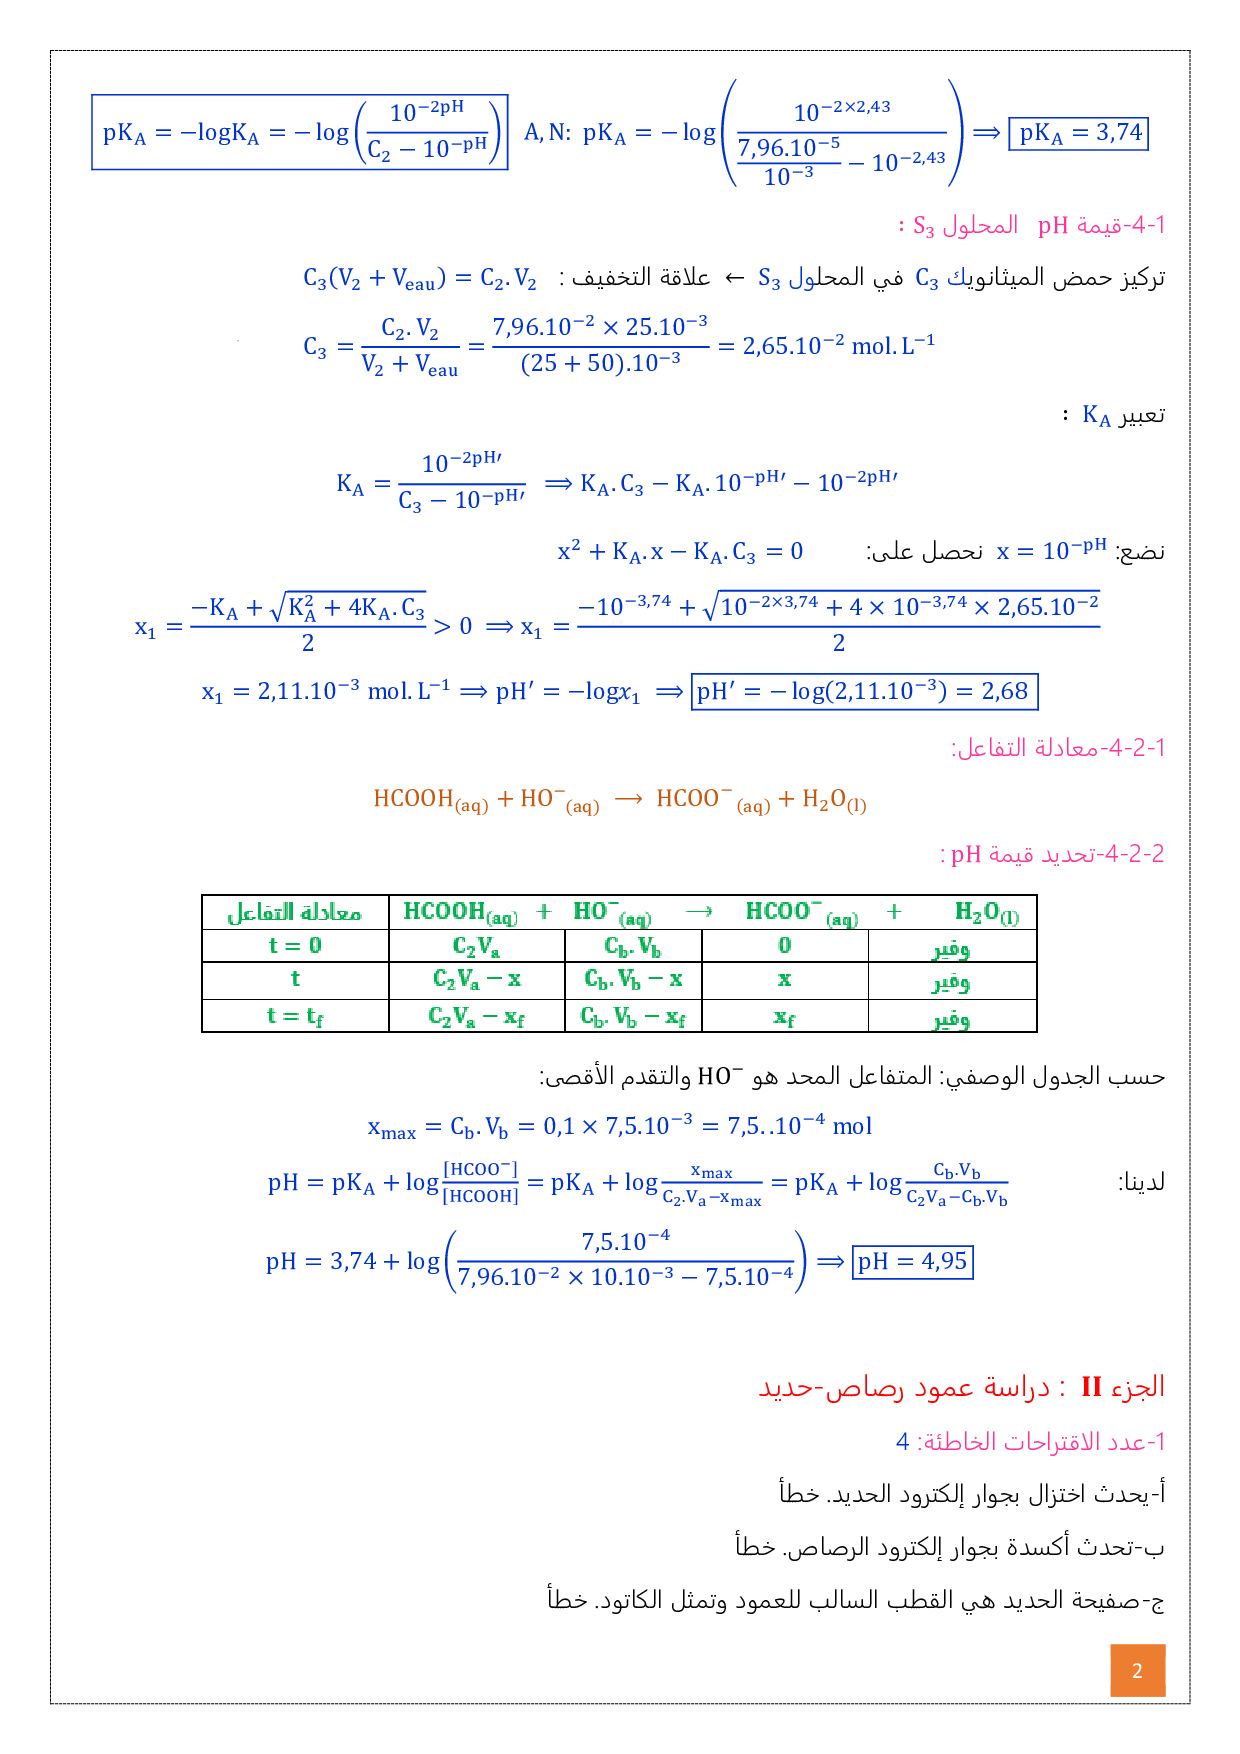 pK_A = −logK_A = −log(10^−2pH / (C_2 − 10^−pH)) A,N: pK_A = −log(10^−2×2,43 / (7,96.10^−5 / 10^−3 − 10^−2,43)) ⟹ pK_A = 3,74
4-1-قيمة pH المحلول S_3 :
تركيز حمض الميثانويك C_3 في المحلول S_3 ← علاقة التخفيف : C_3(V_2 + V_eau) = C_2.V_2
C_3 = C_2.V_2 / (V_2 + V_eau) = 7,96.10^−2 × 25.10^−3 / (25 + 50).10^−3 = 2,65.10^−2 mol.L^−1
تعبير K_A :
K_A = 10^−2pH′ / (C_3 − 10^−pH′) ⟹ K_A.C_3 − K_A.10^−pH′ − 10^−2pH′
نضع: x = 10^−pH نحصل على: x^2 + K_A.x − K_A.C_3 = 0
x_1 = (−K_A + √(K_A^2 + 4K_A.C_3)) / 2 > 0 ⟹ x_1 = (−10^−3,74 + √(10^−2×3,74 + 4 × 10^−3,74 × 2,65.10^−2)) / 2
x_1 = 2,11.10^−3 mol.L^−1 ⟹ pH′ = −logx_1 ⟹ pH′ = −log(2,11.10^−3) = 2,68
4-2-1-معادلة التفاعل:
HCOOH(aq) + HO^−(aq) ⟶ HCOO^−(aq) + H_2O(l)
4-2-2-تحديد قيمة pH :
معادلة التفاعل HCOOH(aq) + HO^−(aq) → HCOO^−(aq) + H_2O(l)
t = 0 C_2V_a C_b.V_b 0 وفير
t C_2V_a − x C_b.V_b − x x وفير
t = t_f C_2V_a − x_f C_b.V_b − x_f x_f وفير
حسب الجدول الوصفي: المتفاعل المحد هو HO^− والتقدم الأقصى:
x_max = C_b.V_b = 0,1 × 7,5.10^−3 = 7,5..10^−4 mol
لدينا: pH = pK_A + log [HCOO^−]/[HCOOH] = pK_A + log x_max/(C_2.V_a−x_max) = pK_A + log C_b.V_b/(C_2V_a−C_b.V_b)
pH = 3,74 + log(7,5.10^−4 / (7,96.10^−2 × 10.10^−3 − 7,5.10^−4)) ⟹ pH = 4,95
الجزء II : دراسة عمود رصاص-حديد
1-عدد الاقتراحات الخاطئة: 4
أ-يحدث اختزال بجوار إلكترود الحديد. خطأ
ب-تحدث أكسدة بجوار إلكترود الرصاص. خطأ
ج-صفيحة الحديد هي القطب السالب للعمود وتمثل الكاتود. خطأ
2